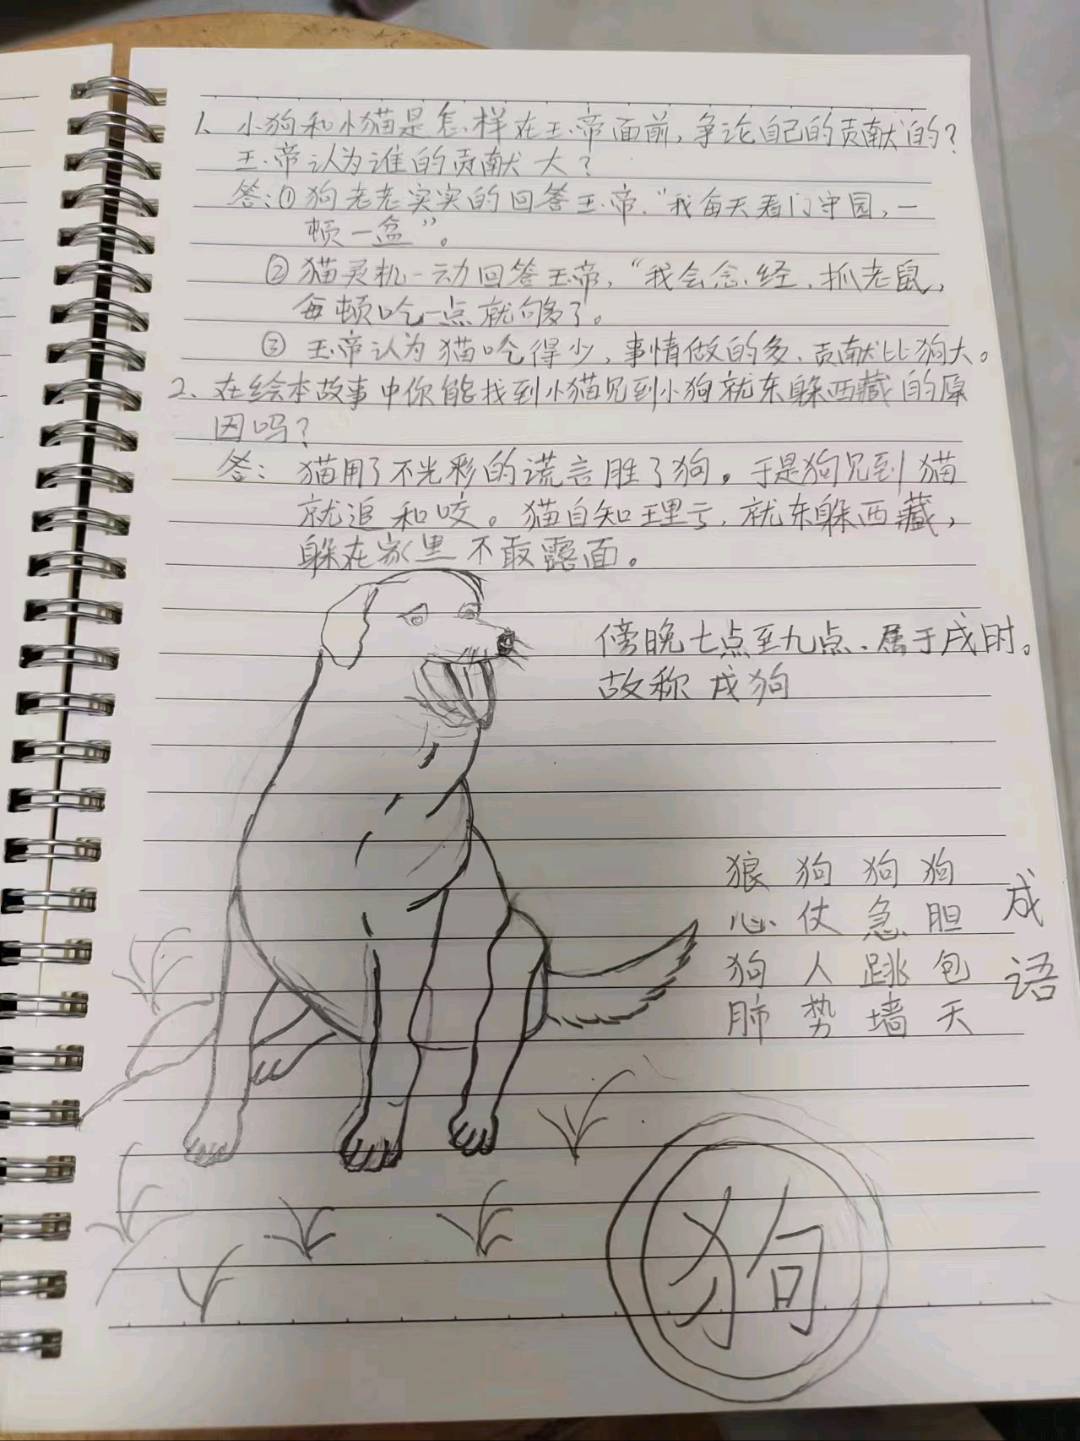 1、小狗和小猫是怎样在玉帝面前,争论自己的贡献的?
玉帝认为谁的贡献大?
答:①狗老老实实的回答玉帝,“我每天看门守园,一
顿一盆”。
②猫灵机一动回答玉帝,“我会念经,抓老鼠,
每顿吃一点就够了。
③玉帝认为猫吃得少,事情做的多、贡献比狗大。
2、在绘本故事中你能找到小猫见到小狗就东躲西藏的原
因吗?
答:猫用了不光彩的谎言胜了狗。于是狗见到猫
就追和咬。猫自知理亏,就东躲西藏,
躲在家里不敢露面。
傍晚七点至九点、属于戌时。
故称戌狗
成语
狗胆包天
狗急跳墙
狗仗人势
狼心狗肺
狗